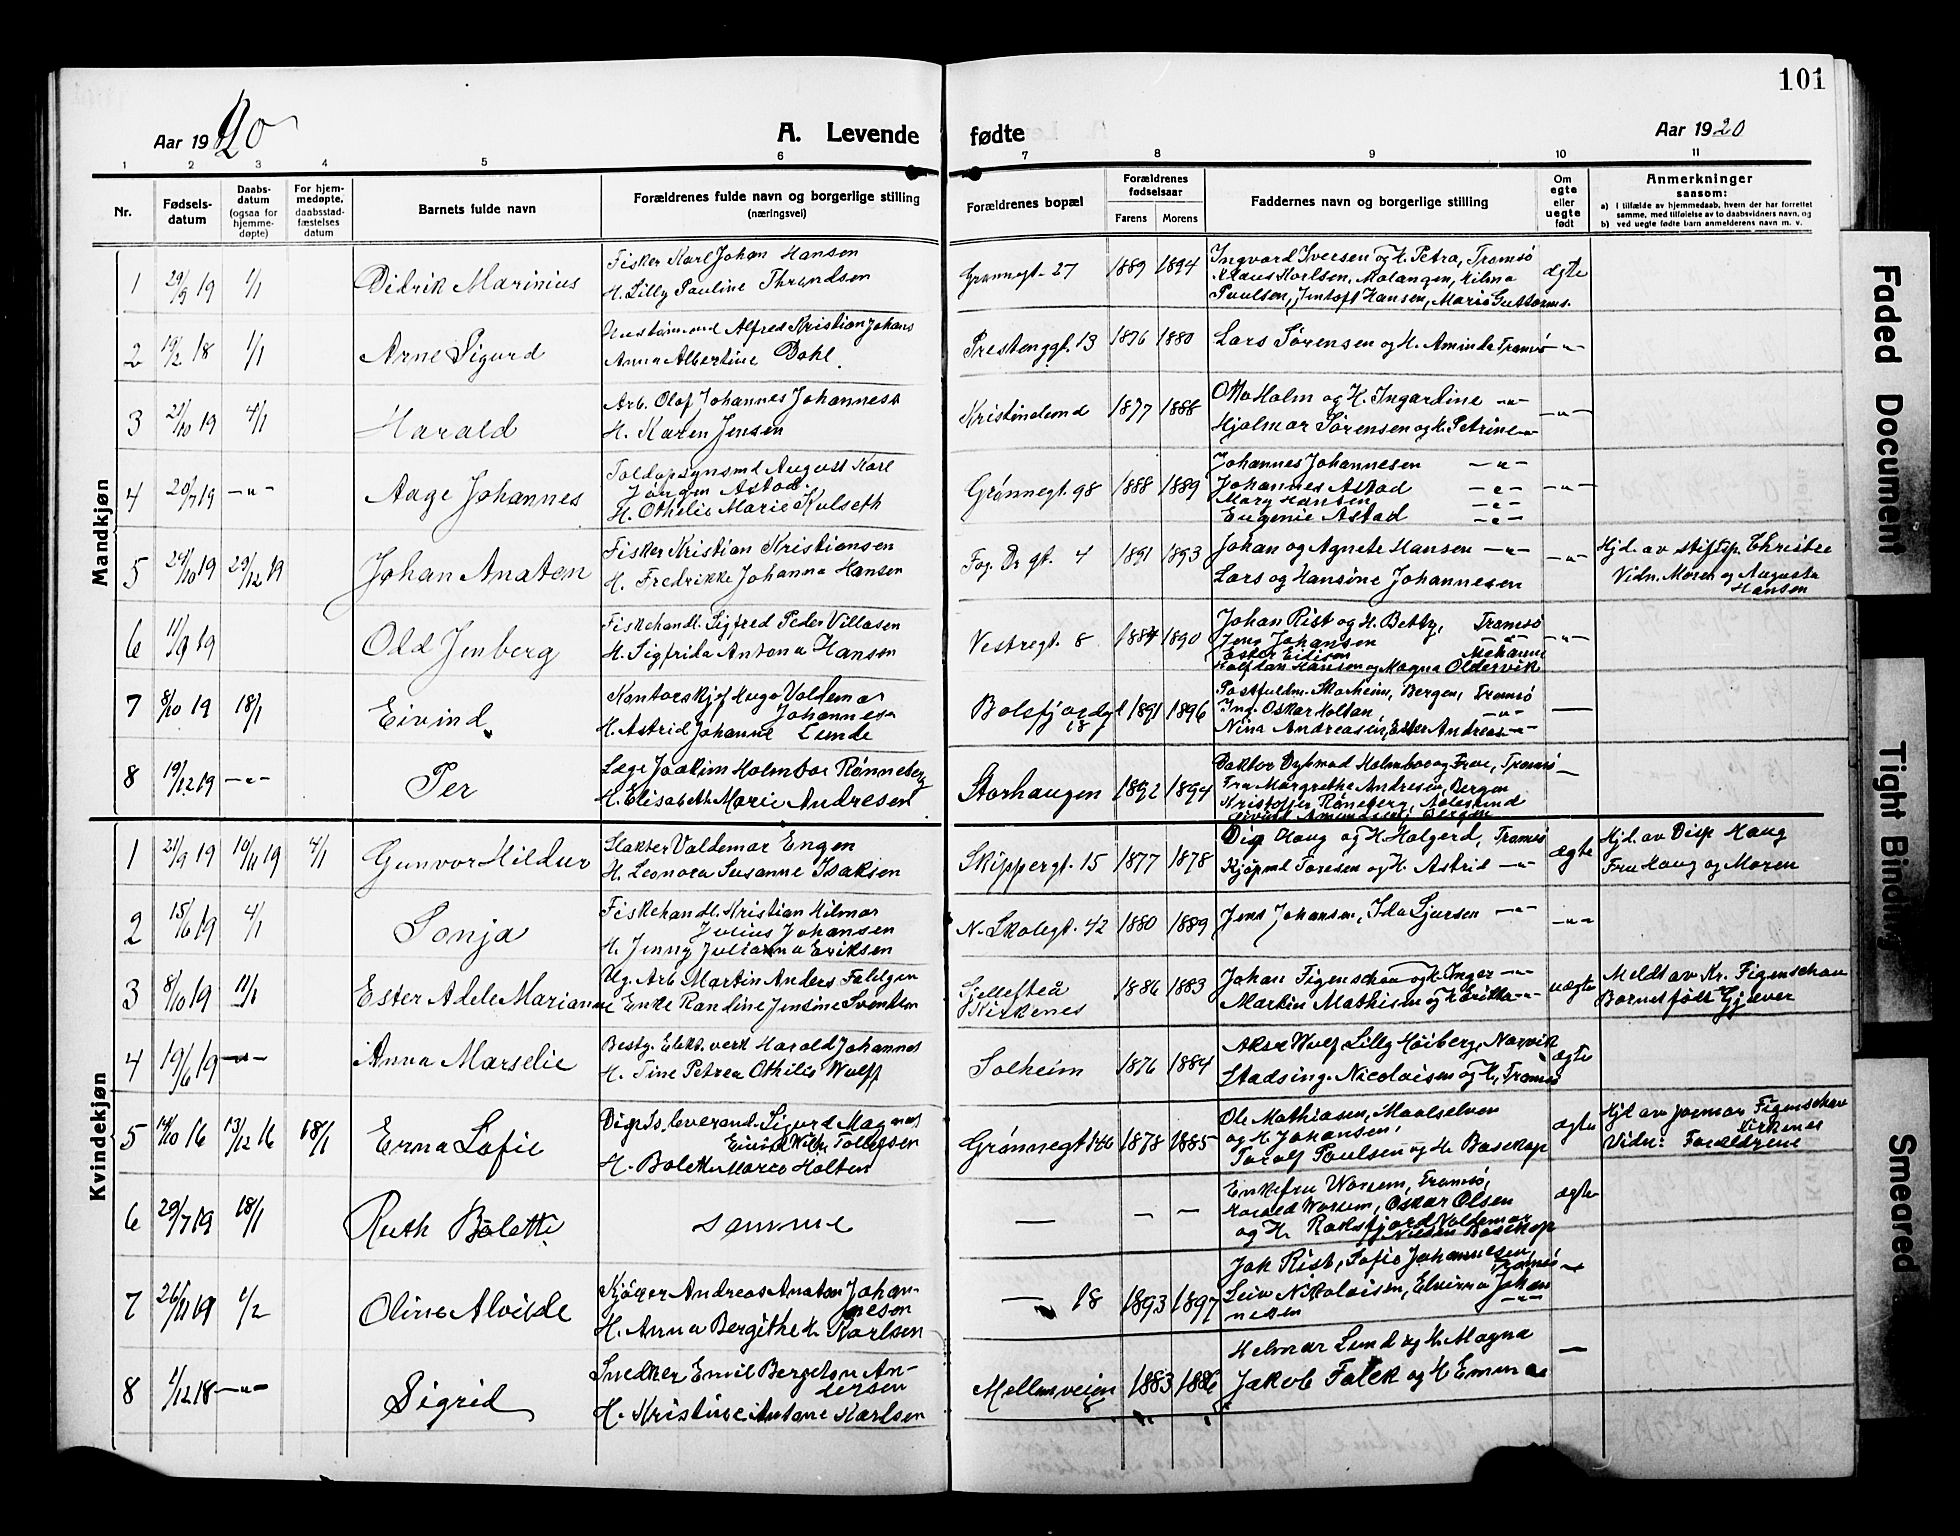 101
Aar 1920
A. Levende
fødte
Aar 1920
1 2 3 4 5 6 7 8 9 10 11
Nr.
Fødsels-
datum
Daabs-
datum
(ogsaa for
hjemme-
døpte)
For hjem-
medøpte,
daabsstad-
fæstelses
datum
Barnets fulde navn
Forældrenes fulde navn og borgerlige stilling
(næringsvei)
Forældrenes bopæl
Forældrenes
fødselsaar
Farens Morens
Faddernes navn og borgerlige stilling
Om
egte
eller
uegte
født
Anmerkninger
saasom:
a) I tilfælde av hjemmedaab, hvem der har forrettet
samme, med tilføielse av to daabsvidners navn, og
b) ved uegte fødte barn anmelderens navn m. v.
Mandkjøn
1 29/9 19 1/1 Didrik Marinius
Fisker Karl Johan Hansen
H. Lilly Pauline Throndsen
Grønnegt. 27 1889 1894
Ingvard Iversen og H. Petra, Tromsø
Klaus Karlsen, Malangen, Hilma
Paulsen, Jentoft Hansen, Marie Guttorms.
ægte
2 19/2 18 1/1 Arne Sigurd
Alfred Kristian Johans
Anna Albertine Dahl.
Prestenggt. 13 1876 1880
Lars Sørensen og H. Aminda Tromsø -"-
3 21/10 19 4/1 Harald
Arb. Olaf Johannes Johanness
H. Karen Jensen
Kristinelund 1877 1888
Otto Holm og H. Ingardine -"-
Hjalmar Sørensen og H. Petrine -"-
-"-
4 20/7 19 -"- Aage Johannes
Toldopsynsmd August Karl
Jørgen Astad.
H. Othelie Marie Kulseth
Grønnegt. 98 1888 1889
Johannes Johannesen -"-
Johannes Astad -"-
Mary Hansen -"-
Eugenie Astad -"-
-"-
5 24/10 19 29/12 19 Johan Anaton
Fisker Kristian Kristiansen
H. Fredrikke Johanna Hansen
Fog. Dr. gt. 4 1891 1893
Johan og Agnete Hansen -"-
Lars og Hansine Johannesen
-"-
Hjd. av stiftsp. Christie
Vidn. Moren og Augusta
Hansen
6 11/9 19 Odd Jenberg
Fiskehandl. Sigfred Peder Villasen
H. Sigfrida Antona Hansen
Vestregt. 8 1884 1890
Johan Rist og H. Betty, Tromsø
Jens Johansen -"-
Ester Eidisen Mehavne
Halfdan Hansen og Magna Oldervik
-"-
7 8/10 19 18/1 Eivind
Kontorskjef Hugo Valdemar
Johannesen
H. Astrid Johanne Lunde
Balsfjordgt
18 1891 1896
Postfuldm. Skarheim, Bergen, Tromsø
Ing. Oskar Holtan -"-
Nina Andreasen, Ester Andreas -"-
—
8 19/12 19 -"- Per
Læge Joakim Holmboe Rønneberg
H. Elisabeth Marie Andresen
Storhaugen 1892 1894
Doktor Dybmad Holmboe og Frue, Tromsø
Fru Margrethe Andresen, Bergen
Kristoffer Røneberg, Aalesund
Eivind Amundsen, Bergen
—
Kvindekjøn
1 21/9 19 10/11 19 4/1 Gunvor Hildur
Slakter Valdemar Engen
H. Leonora Susanne Isaksen
Skippergt. 15 1877 1878
Disp Haug og H. Holgerd, Tromsø
Kjøpmd Toresen og H. Astrid -"-
ægte
Hjd. av Disp Haug
Fru Haug og Moren
2 15/6 19 4/1 Sonja
Fiskehandl. Kristian Hilmar
Julius Johansen
H. Jenny Julianna Eriksen
N. Skolegt. 42 1880 1889
Jens Johansen, Ida Sjursen -"-
-"-
3 8/10 19 11/1 Ester Adele Marianne
Ug. Arb. Martin Anders Fallgen
Enke Randine Jensine Svendsen
Sjelleftеå
Kirkenes
1886 1883
Johan Figenschau og H. Inger -"-
Martin Mathisen og H. Erikka -"-
uægte
Meldt av Kr. Figenschau
Barnet født Gjæver
4 19/6 19 -"- Anna Marselie
Besty. Elekt. verk Harald Johannes
H. Tine Petrea Othilie Wulff
Solheim 1876 1884
Aksel Wulf, Lilly Høiberg, Narvik
Stadsing. Nicolaisen og H., Tromsø
ægte
5 14/10 16 13/12 16 18/1 Erna Sofie
Sigurd Magnus
Eivind Wilh. Tollefsen
H. Bolette Marea Holten
Grønnegt 146 1878 1885
Ole Mathiasen, Maalselven
og H. Johansen,
Toralf Poulsen og H. Bosekop
ægte
Hjd. av Figenschau
Kirkenes
Vidn: Forældrene
6 29/7 19 18/1 Ruth Boletti
samme
— — —
Enkefru Worsem, Tromsø,
Harald Worsem, Oskar Olsen
og H. Raksfjord, Valdemar
Nilsen Bosekop
ægte
7 26/11 19 1/2 Oline Alvilde
Kjører Andreas Anaton Johan-
nesen
H. Anna Bergithe K. Karlsen
— 18 1893 1897
Jak Rist, Sofie Johannesen,
Tromsø
Leiv Nikolaisen, Elvirra Johan
nesen -"-
—
8 1/12 18 -"- Sigrid
Snedker Emil Bergeton An-
dersen
H. Kristine Antone Karlsen
Mellemveien 1883 1886
Helmar Lund og H. Magna
Jakob Falck og H. Emma
—
Faded Document
Tight Binding
Smeared